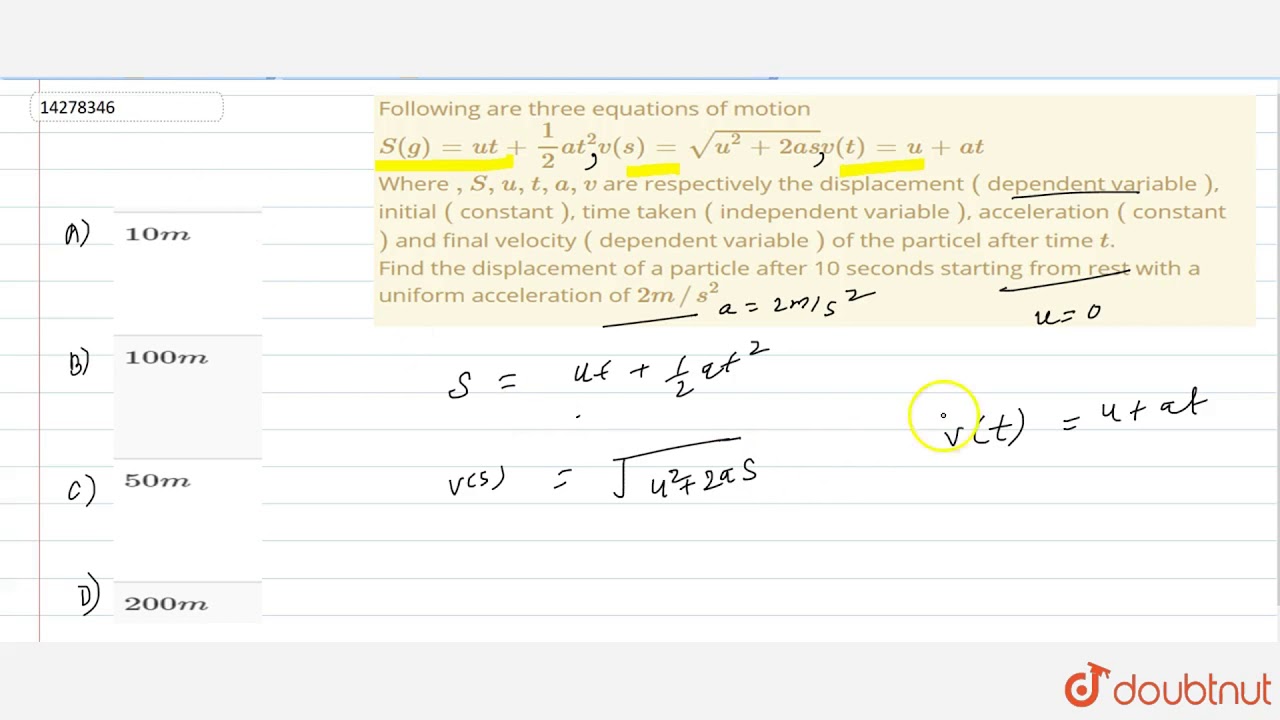 14278346
Following are three equations of motion
S(g) = ut + 1/2 at², v(s) = √(u² + 2as), v(t) = u + at
Where , S, u, t, a, v are respectively the displacement ( dependent variable ),
initial ( constant ), time taken ( independent variable ), acceleration ( constant
) and final velocity ( dependent variable ) of the particel after time t.
Find the displacement of a particle after 10 seconds starting from rest with a
uniform acceleration of 2m / s²
a = 2m/s²
u = 0
A) 10m
B) 100m
C) 50m
D) 200m
S = ut + 1/2 at²
v(t) = u + at
v(s) = √(u² + 2as)
doubtnut